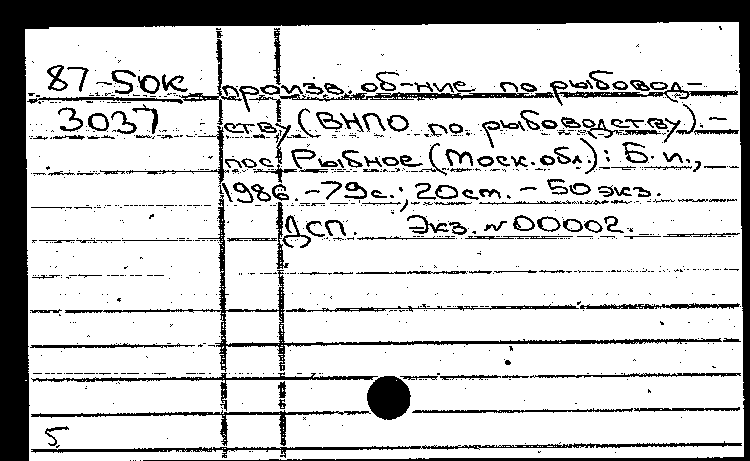 87-50к произв. об-ние по рыбовод-
3037 ству (ВНПО по рыбоводству). -
пос. Рыбное (Моск. обл.): Б. и.,
1986. - 79 с.; 20 см. - 50 экз.
ДСП. Экз. № 00002.
5